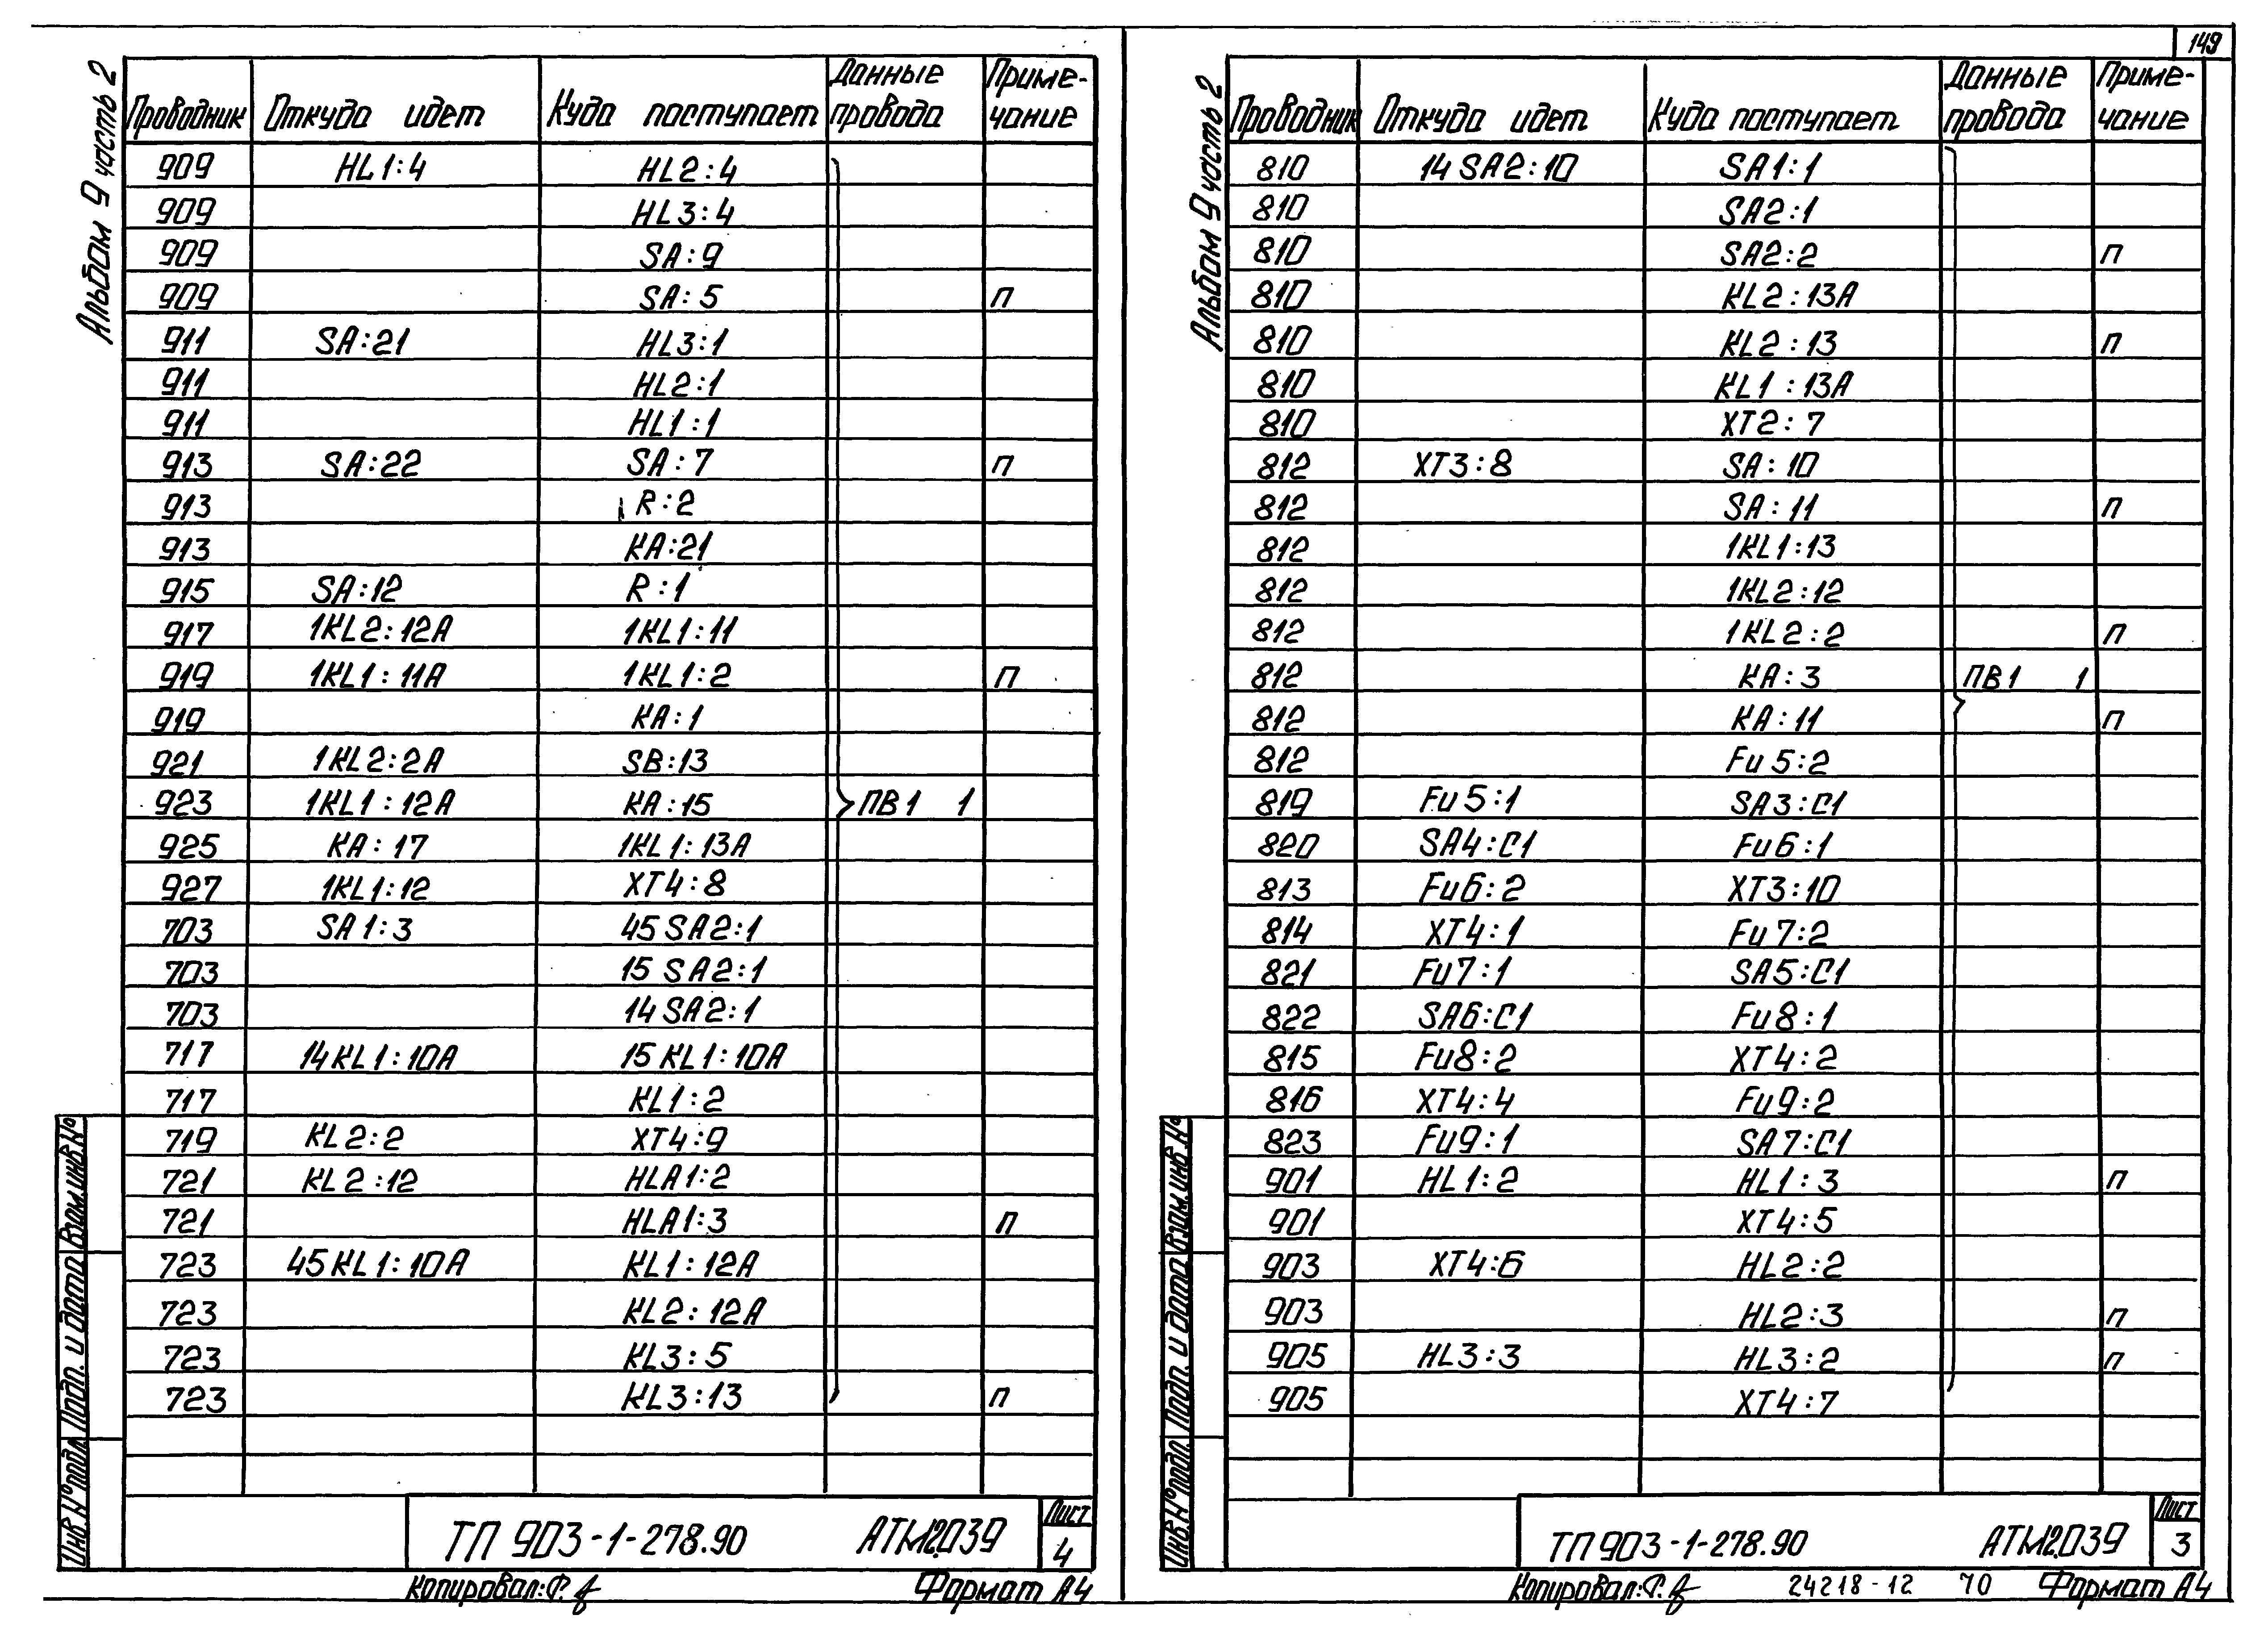 Альбом 9 часть 2
Проводник Откуда идет Куда поступает Данные провода Примечание
909 HL1:4 HL2:4
909 HL3:4
909 SA:9
909 SA:5 п
911 SA:21 HL3:1
911 HL2:1
911 HL1:1
913 SA:22 SA:7 п
913 R:2
913 KA:21
915 SA:12 R:1
917 1KL2:12A 1KL1:11
919 1KL1:11A 1KL1:2 п
919 KA:1
921 1KL2:2A SB:13
923 1KL1:12A KA:15 ПВ1 1
925 KA:17 1KL1:13A
927 1KL1:12 XT4:8
703 SA1:3 45SA2:1
703 15SA2:1
703 14SA2:1
717 14KL1:10A 15KL1:10A
717 KL1:2
719 KL2:2 XT4:9
721 KL2:12 HLA1:2
721 HLA1:3 п
723 45KL1:10A KL1:12A
723 KL2:12A
723 KL3:5
723 KL3:13 п
Взам.инв.№
Подп. и дата
Инв.№подл.
ТП 903-1-278.90 АТМ2.039 Лист 4
Копировал: Формат А4
149
Альбом 9 часть 2
Проводник Откуда идет Куда поступает Данные провода Примечание
810 14SA2:10 SA1:1
810 SA2:1
810 SA2:2 п
810 KL2:13A
810 KL2:13 п
810 KL1:13A
810 XT2:7
812 XT3:8 SA:10
812 SA:11 п
812 1KL1:13
812 1KL2:12
812 1KL2:2 п
812 KA:3 ПВ1 1
812 KA:11 п
812 Fu5:2
819 Fu5:1 SA3:C1
820 SA4:C1 Fu6:1
813 Fu6:2 XT3:10
814 XT4:1 Fu7:2
821 Fu7:1 SA5:C1
822 SA6:C1 Fu8:1
815 Fu8:2 XT4:2
816 XT4:4 Fu9:2
823 Fu9:1 SA7:C1
901 HL1:2 HL1:3 п
901 XT4:5
903 XT4:6 HL2:2
903 HL2:3 п
905 HL3:3 HL3:2 п
905 XT4:7
Взам.инв.№
Подп. и дата
Инв.№подл.
ТП 903-1-278.90 АТМ2.039 Лист 3
Копировал: 24218-12 70 Формат А4